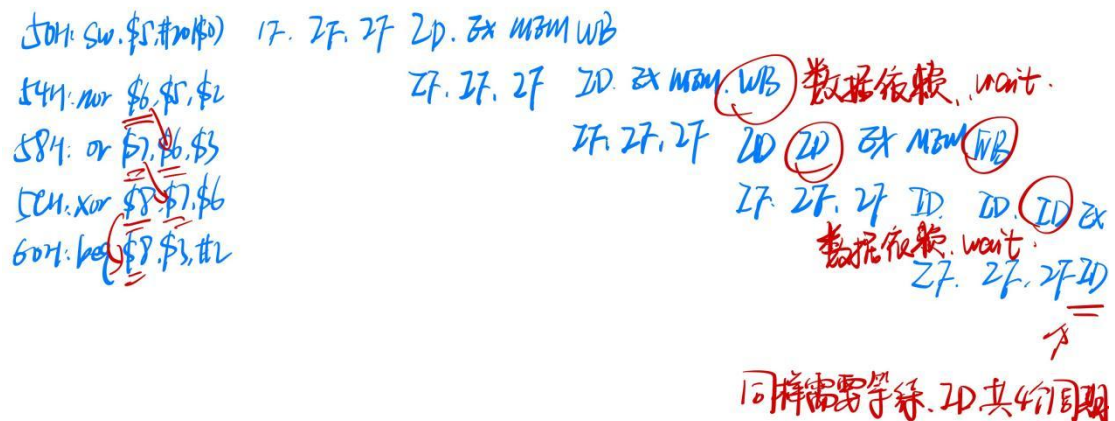 50H: sw. $5,#20($0) IF. IF. IF ID. EX MEM WB
54H: nor $6,$5,$2 IF. IF. IF ID. EX MEM. WB 数据依赖, wait.
58H: or $7,$6,$3 IF. IF. IF ID ID EX MEM WB
5CH: xor $8,$7,$6 IF. IF. IF ID. ID. ID EX
数据依赖. wait.
60H: beq $8,$3,#2 IF. IF. IF ID
同样需要等待. ID共4个周期